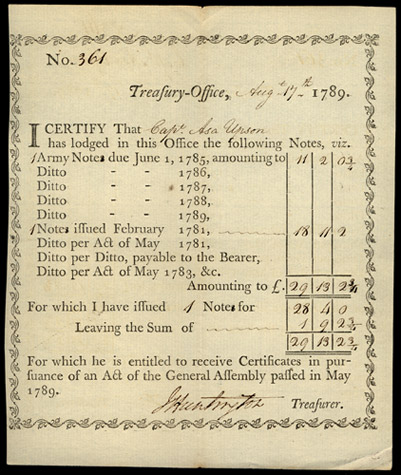 No. 361
Treasury-Office, Augt 17th 1789.
I CERTIFY That Capt. Asa Upson
has lodged in this Office the following Notes, viz.
1 Army Notes due June 1, 1785, amounting to 11 2 0¾
Ditto - - 1786,
Ditto - - 1787,
Ditto - - 1788,
Ditto - - 1789,
1 Notes issued February 1781, 18 11 2
Ditto per Act of May 1781,
Ditto per Ditto, payable to the Bearer,
Ditto per Act of May 1783, &c.
Amounting to £. 29 13 2¾
For which I have issued 1 Notes for 28 4 0
Leaving the Sum of 1 9 2¾
29 13 2¾
For which he is entitled to receive Certificates in pur-
suance of an Act of the General Assembly passed in May
1789.
J Huntington Treasurer.